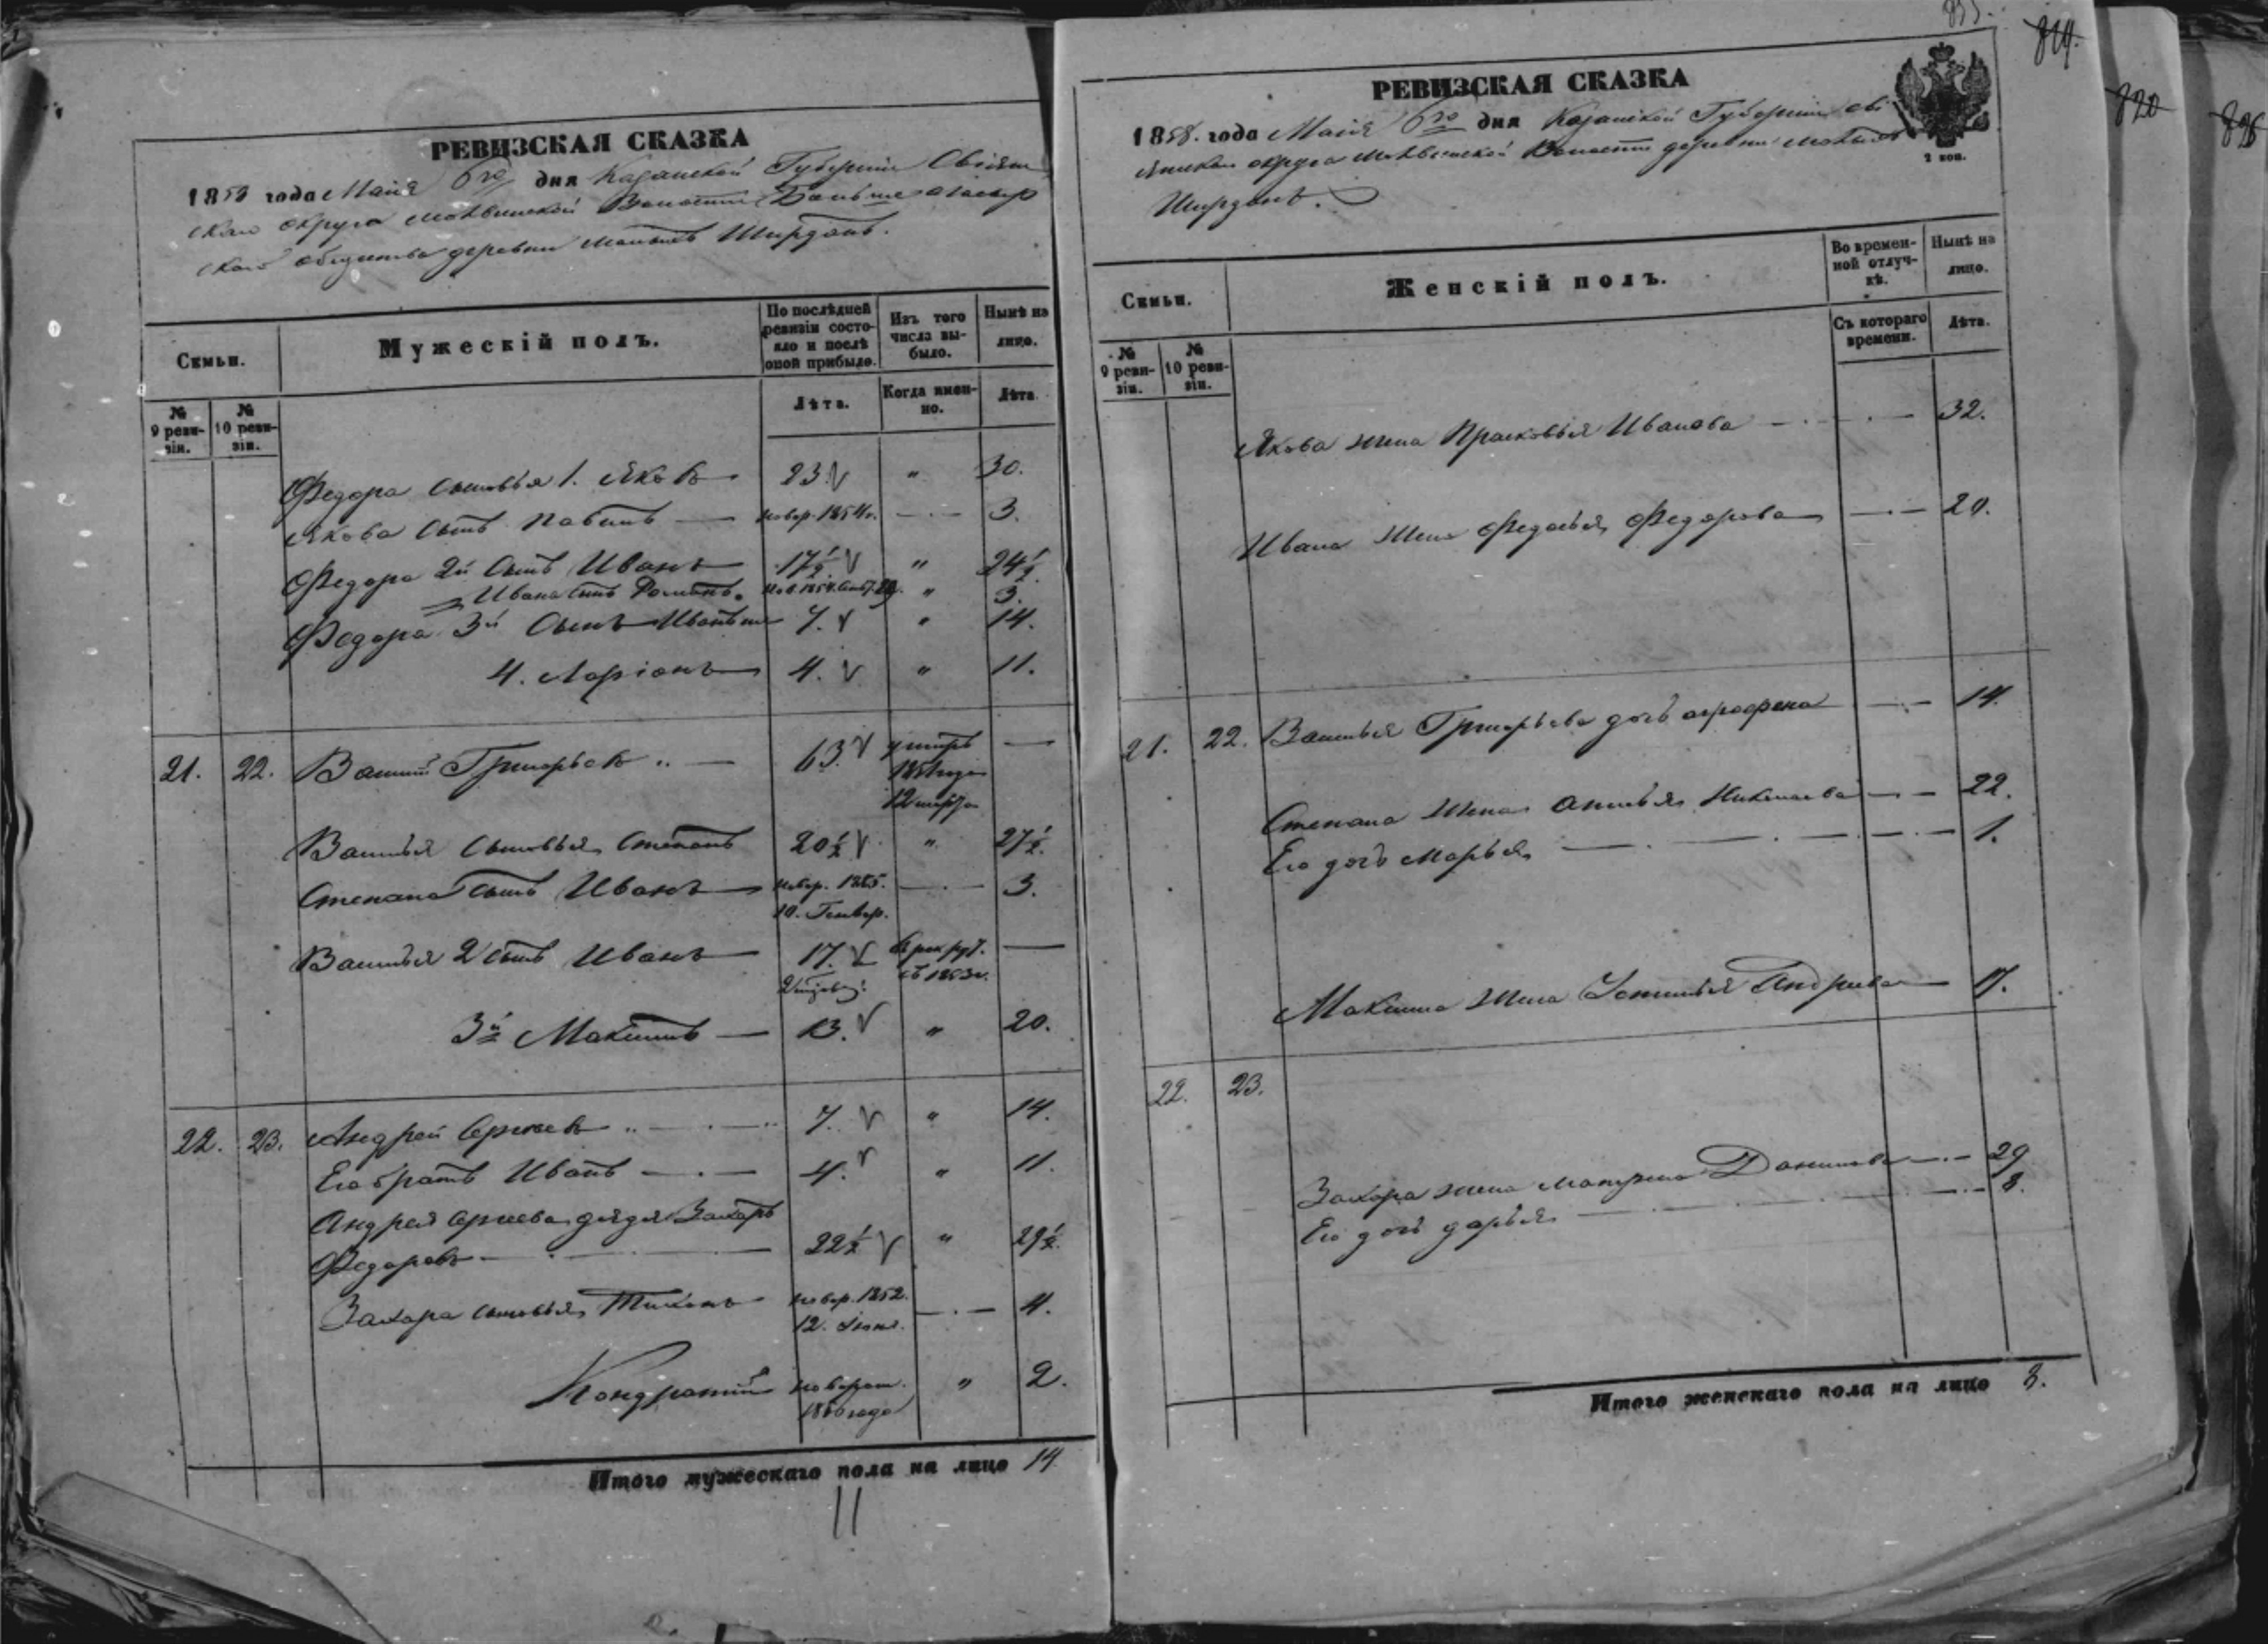 РЕВИЗСКАЯ СКАЗКА
1858 года Маія 6го дня Казанской Губерніи Свіяж
скаго округа Волости
скаго общества деревни Малыхъ Ширданъ.
Семьи.
Мужескій полъ.
По послѣдней ревизіи состо-яло и послѣ оной прибыло.
Изъ того числа вы-было.
Нынѣ на лицо.
№ 9 реви-зіи.
№ 10 реви-зіи.
Лѣта.
Когда имен-но.
Лѣта
Федора сыновья 1. Яковъ 23. " 30.
Якова сынъ Павелъ новор. 1854г. 3.
Федора 2й сынъ Иванъ 17½ " 24½.
Ивана сынъ Романъ. " 3.
Федора 3й сынъ 7. " 14.
4. Ларіонъ 4. " 11.
21. 22. Василій Григорьевъ 63. умеръ —
1851 года
12
Василья сыновья Степанъ 20½ " 27½.
Степана сынъ Иванъ новор. 1855. 3.
10. Генвар.
Василья 2 сынъ Иванъ 17. в рекрут. —
съ 1853г.
3й Максимъ 13. " 20.
22. 23. Андрей Сергеевъ 7. " 14.
Его братъ Иванъ 4. " 11.
Андрея Сергеева дядя Захаръ
Федоровъ 22½ " 29½.
Захара сыновья Тихонъ новор. 1852. 4.
12. Іюня.
Кондратій новорож. " 2.
года
Итого мужескаго пола на лицо 14
11
819.
820
РЕВИЗСКАЯ СКАЗКА
2 коп.
1858. года Маія 6го дня Казанской Губерніи Сві
яжскаго округа Волости деревни Малыхъ
Ширданъ.
Семьи.
Женскій полъ.
Во времен-ной отлуч-кѣ.
Нынѣ на лицо.
№ 9 реви-зіи.
№ 10 реви-зіи.
Съ котораго времени.
Лѣта.
Якова жена Прасковья Иванова 32.
Ивана жена Федосья Федорова 20.
21. 22. Василья Григорьева дочь аграфена 14.
Степана жена Николаева 22.
Его дочь Марья 1.
Максима жена Устинья Андреева
22. 23.
Захара жена матрена Данилова 29
Его дочь дарья 8.
Итого женскаго пола на лицо 8.